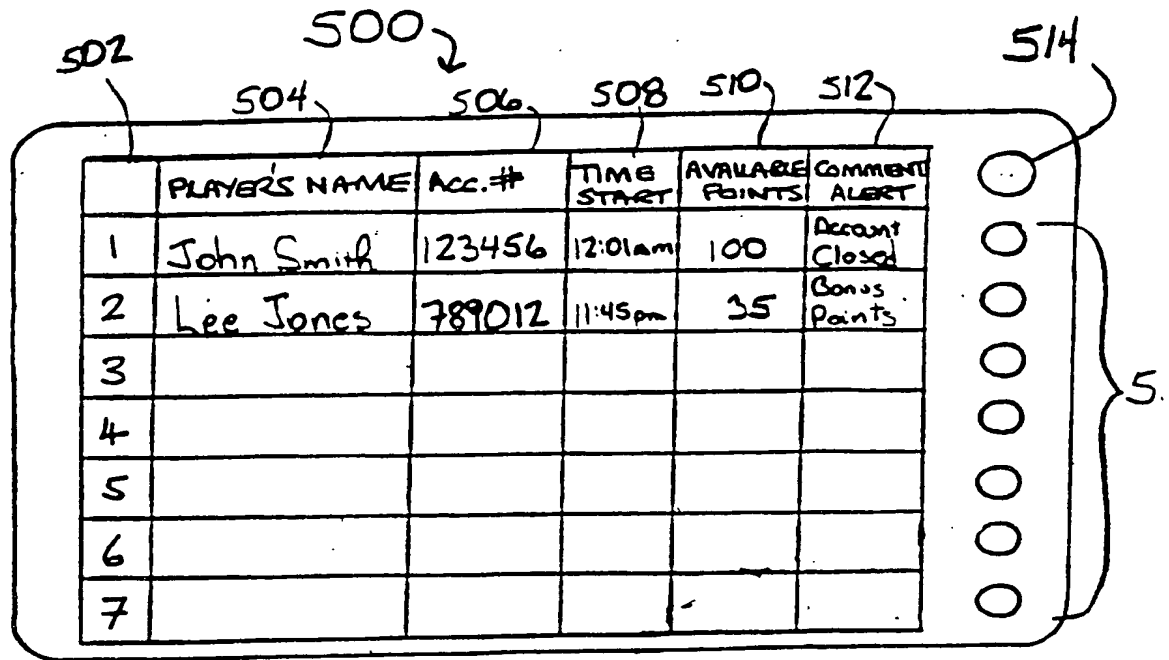 500
502
504
506
508
510
512
514
PLAYER'S NAME
Acc.#
TIME
START
AVAILABLE
POINTS
COMMENT
ALERT
1
John Smith
123456
12:01am
100
Account
Closed
2
Lee Jones
789012
11:45pm
35
Bonus
Points
3
4
5
6
7
5.